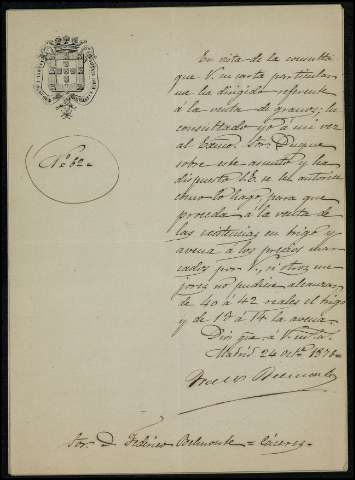 En vista de la consulta
que V. en carta particular
me ha dirigido referente
á la venta de granos, he
consultado yo á mi vez
al Excmo. Sor. Duque
sobre este asunto y ha
dispuesto S.E. se le autorice
como lo hago, para que
proceda á la venta de
las existencias en trigo y
avena á los precios mar-
cados por V., si otros me-
jores no pudiera alcanzar,
de 40 á 42 reales el trigo
y de 13 á 14 la avena.
Dios gue. á V. ms. a.
Madrid 24 Oct.
Belmonte
Nº 62=
Sor. D. Federico Belmonte = Cáceres=